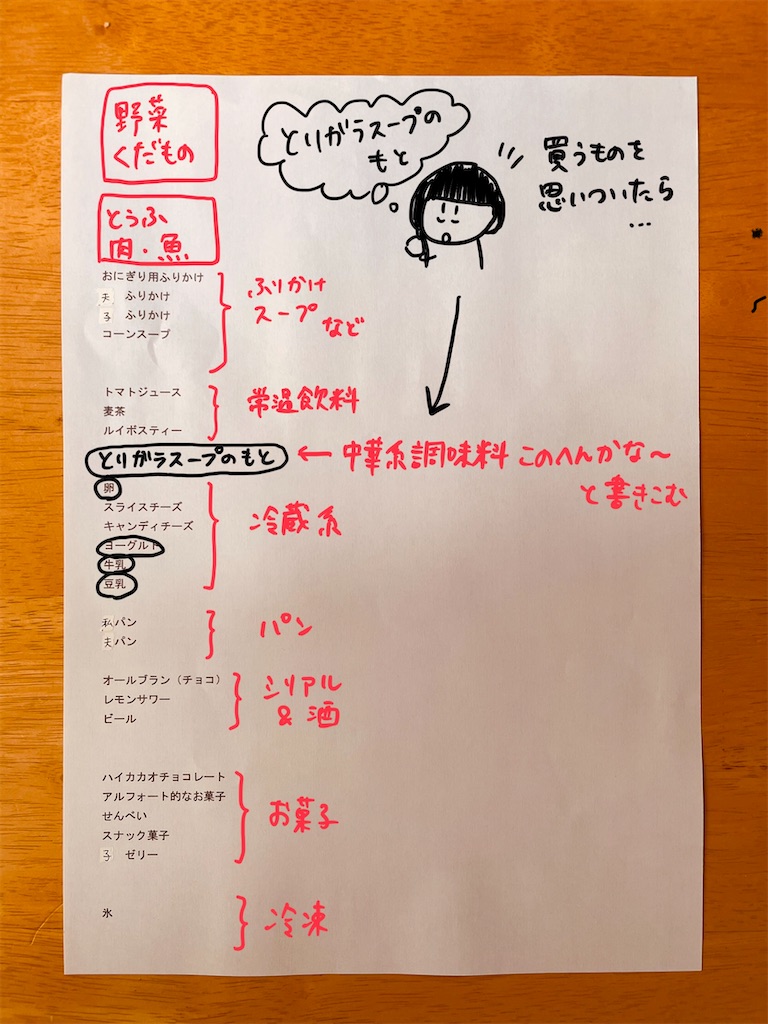 野菜
くだもの
とりがらスープの
もと
買うものを
思いついたら
...
とうふ
肉・魚
おにぎり用ふりかけ
夫 ふりかけ
子 ふりかけ
コーンスープ
ふりかけ
スープ など
トマトジュース
麦茶
ルイボスティー
常温飲料
とりがらスープのもと
← 中華系調味料 このへんかな〜
と書きこむ
卵
スライスチーズ
キャンディチーズ
ヨーグルト
牛乳
豆乳
冷蔵系
私パン
夫パン
パン
オールブラン（チョコ）
レモンサワー
ビール
シリアル
& 酒
ハイカカオチョコレート
アルフォート的なお菓子
せんべい
スナック菓子
子 ゼリー
お菓子
氷
冷凍